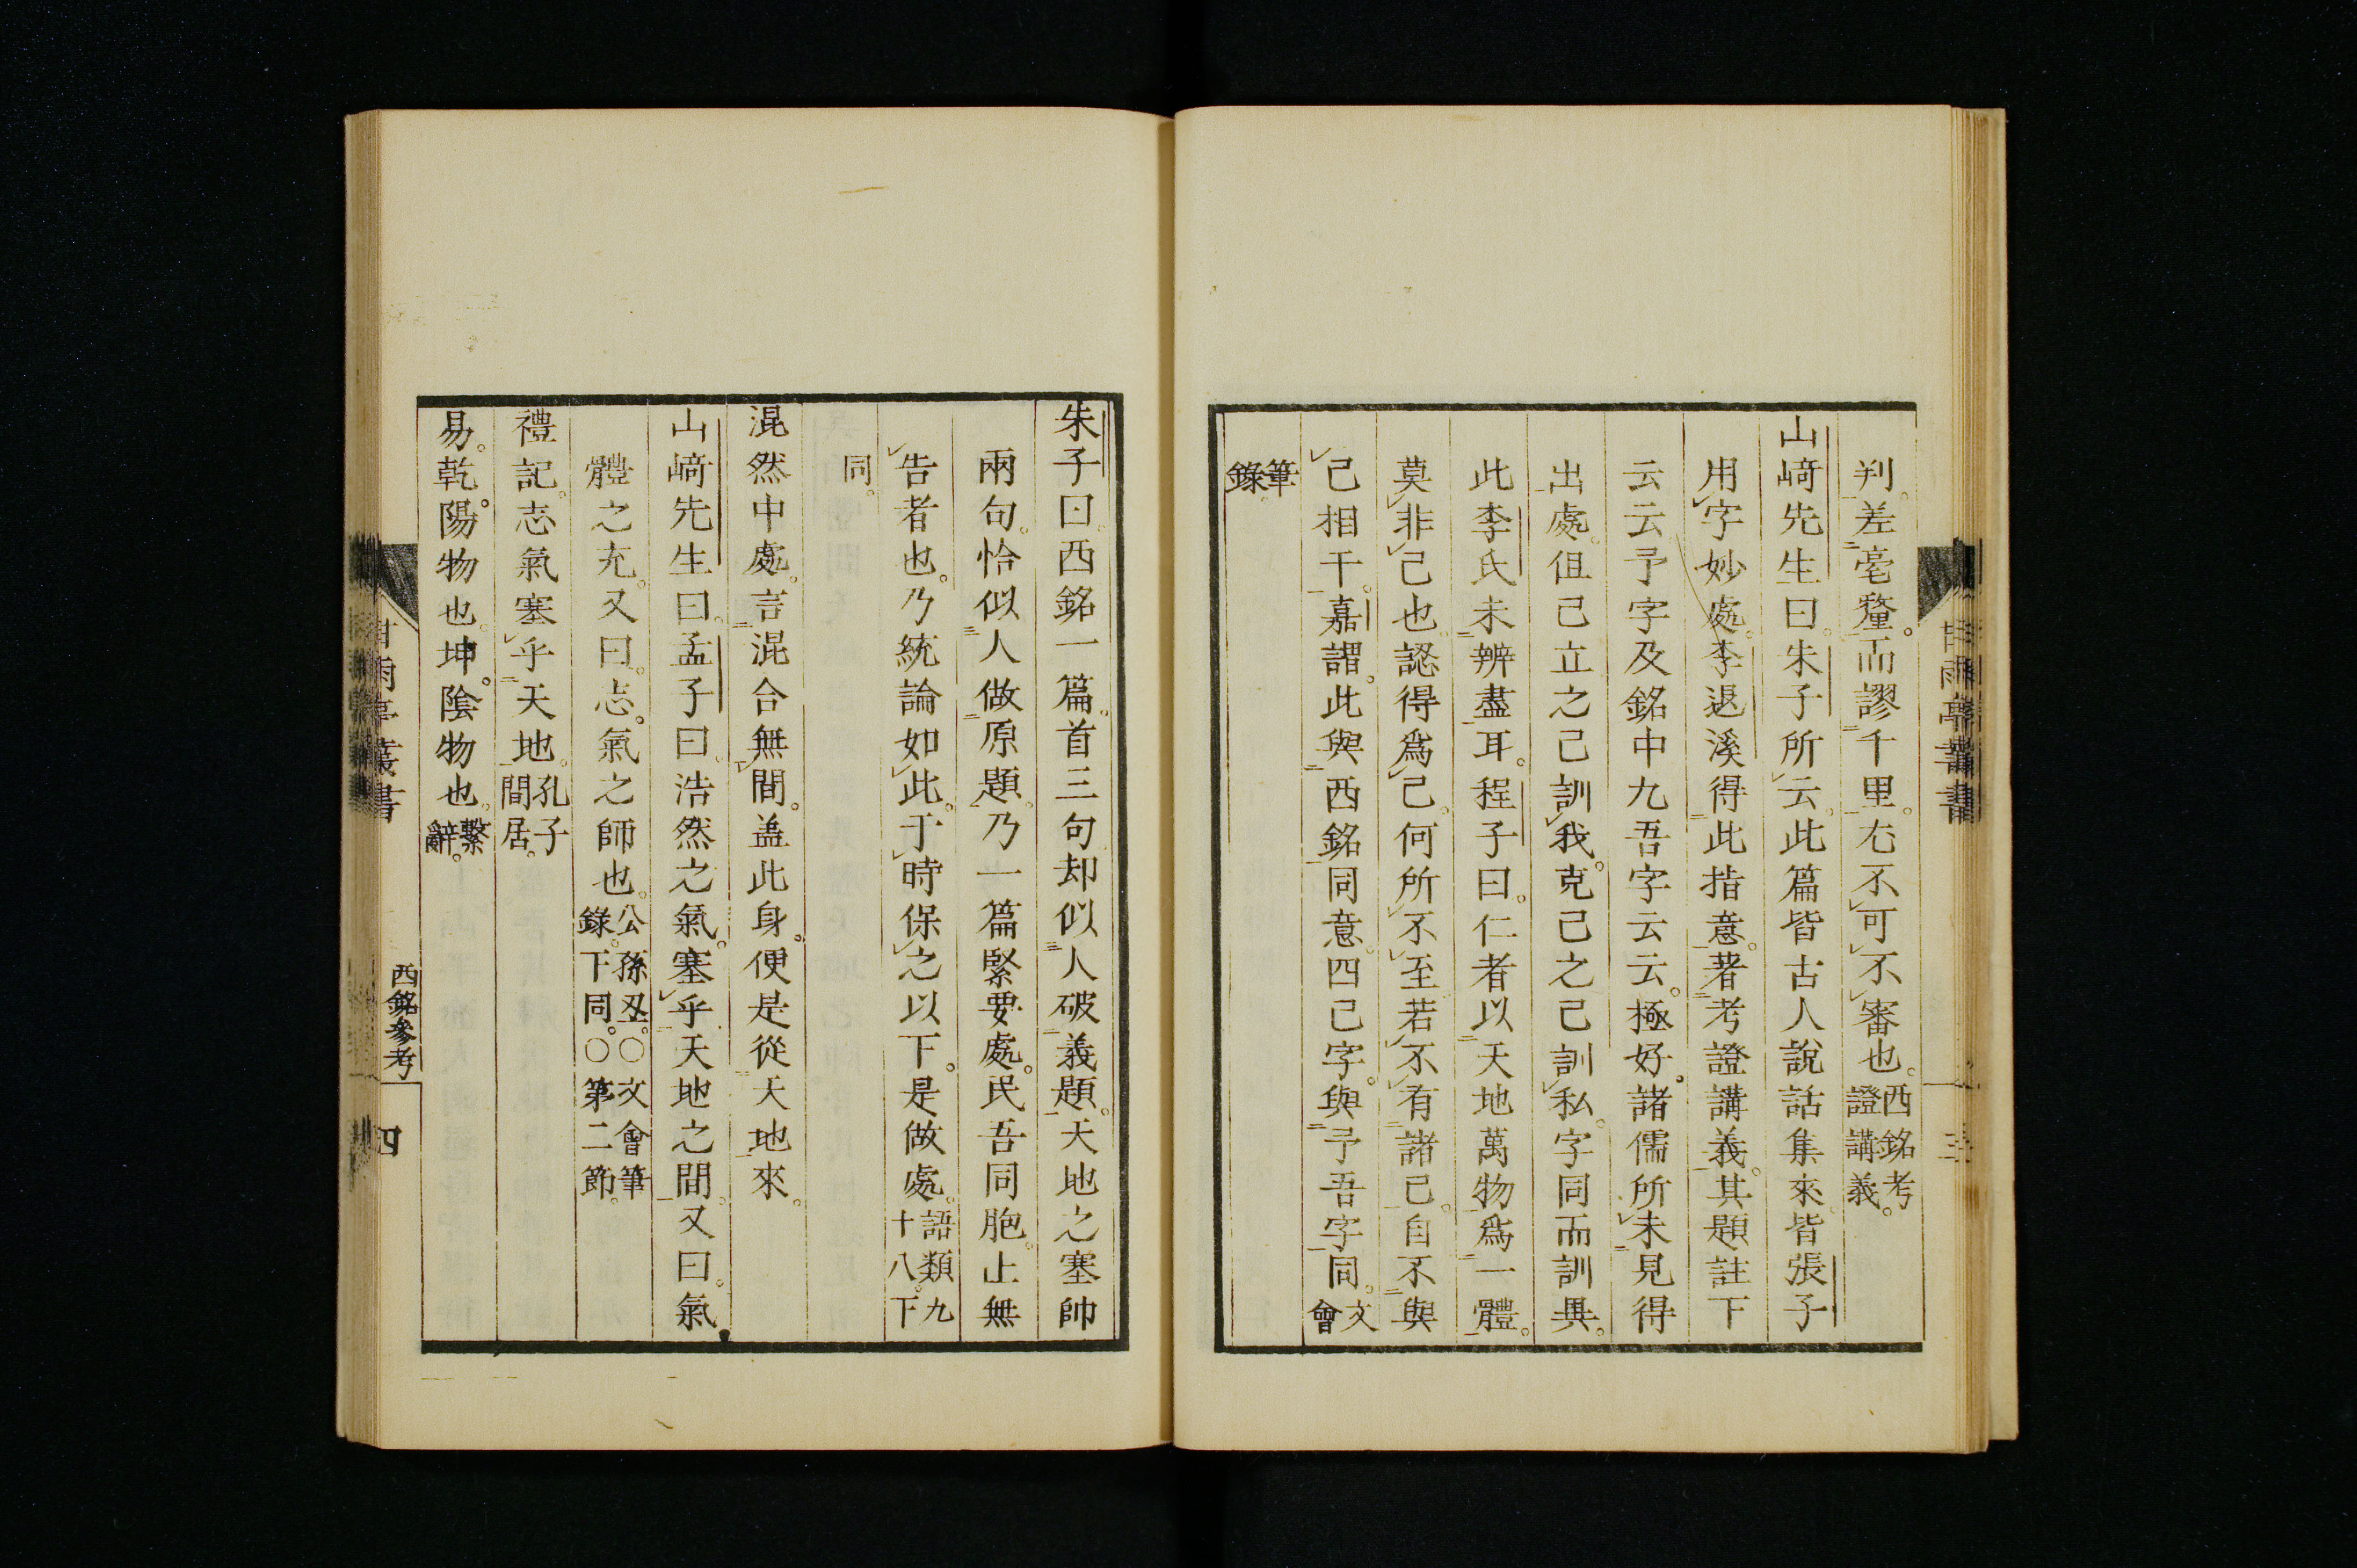 判。差毫釐。而謬千里。尤不可不審也。西銘考證講義。
山﨑先生曰。朱子所云。此篇皆古人說話集來。皆張子
用字妙處。李退溪得此指意。著考證講義。其題註下
云云予字及銘中九吾字云云。極好。諸儒所未見得
出處。但己立之己訓我。克己之己訓私。字同而訓異。
此李氏未辨盡耳。程子曰。仁者以天地萬物爲一體。
莫非己也。認得爲己。何所不至。若不有諸己。自不與
己相干。嘉謂。此與西銘同意。四己字。與予吾字同。文會
筆錄。
朱子曰。西銘一篇。首三句却似人破義題。天地之塞帥
兩句。恰似人做原題。乃一篇緊要處。民吾同胞。止無
告者也。乃統論如此。于時保之以下。是做處。語類九十八。下
同。
混然中處。言混合無間。蓋此身。便是從天地來。
山﨑先生曰。孟子曰。浩然之氣。塞乎天地之間。又曰。氣
體之充。又曰。志。氣之師也。公孫丑。○文會筆錄。下同。○第二節。
禮記。志氣塞乎天地。孔子間居。
易。乾。陽物也。坤。陰物也。繫辭。
甘雨亭叢書
西銘參考
四
甘雨亭叢書
三